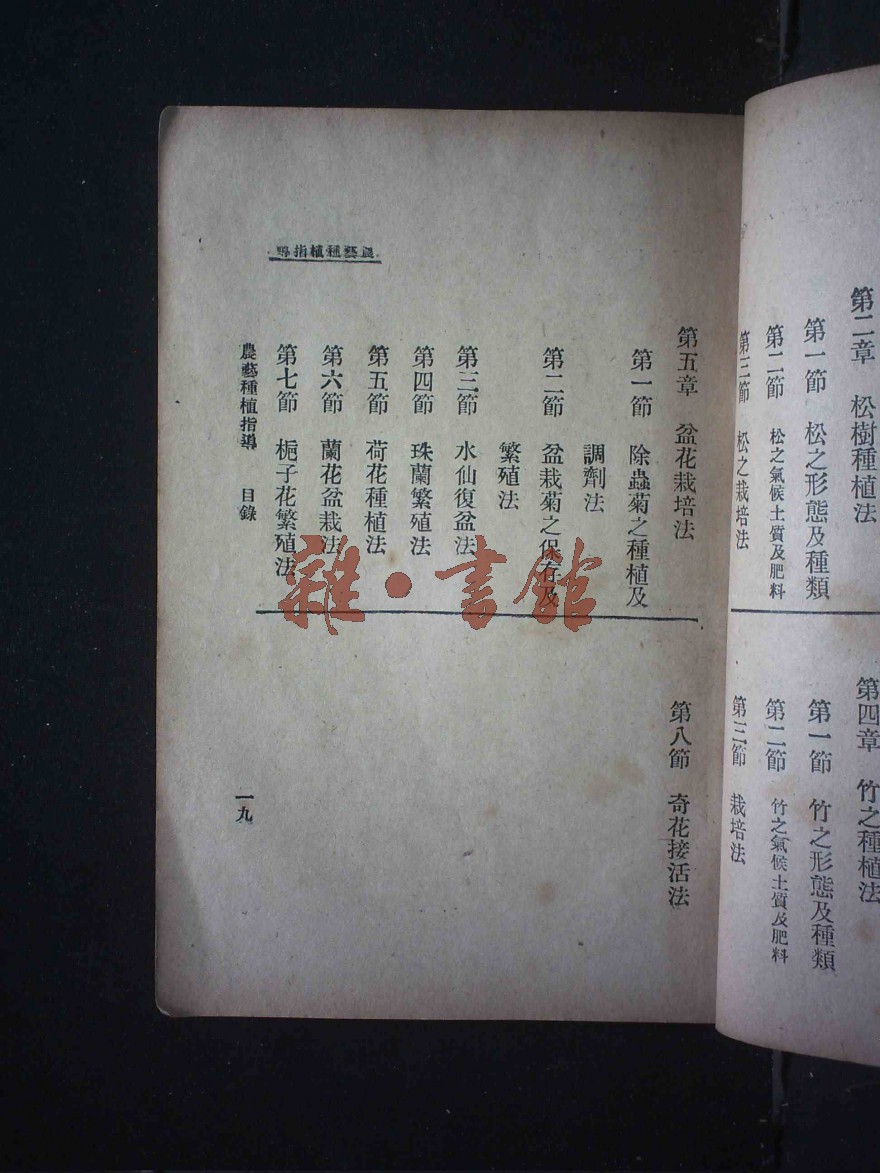 第二章　松樹種植法
第一節　松之形態及種類
第二節　松之氣候土質及肥料
第三節　松之栽培法
第四章　竹之種植法
第一節　竹之形態及種類
第二節　竹之氣候土質及肥料
第三節　栽培法
農藝種植指導
第五章　盆花栽培法
第一節　除蟲菊之種植及
調劑法
第二節　盆栽菊之保存及
繁殖法
第三節　水仙復盆法
第四節　珠蘭繁殖法
第五節　荷花種植法
第六節　蘭花盆栽法
第七節　梔子花繁殖法
第八節　奇花接活法
農藝種植指導　目錄
一九
雜·書館